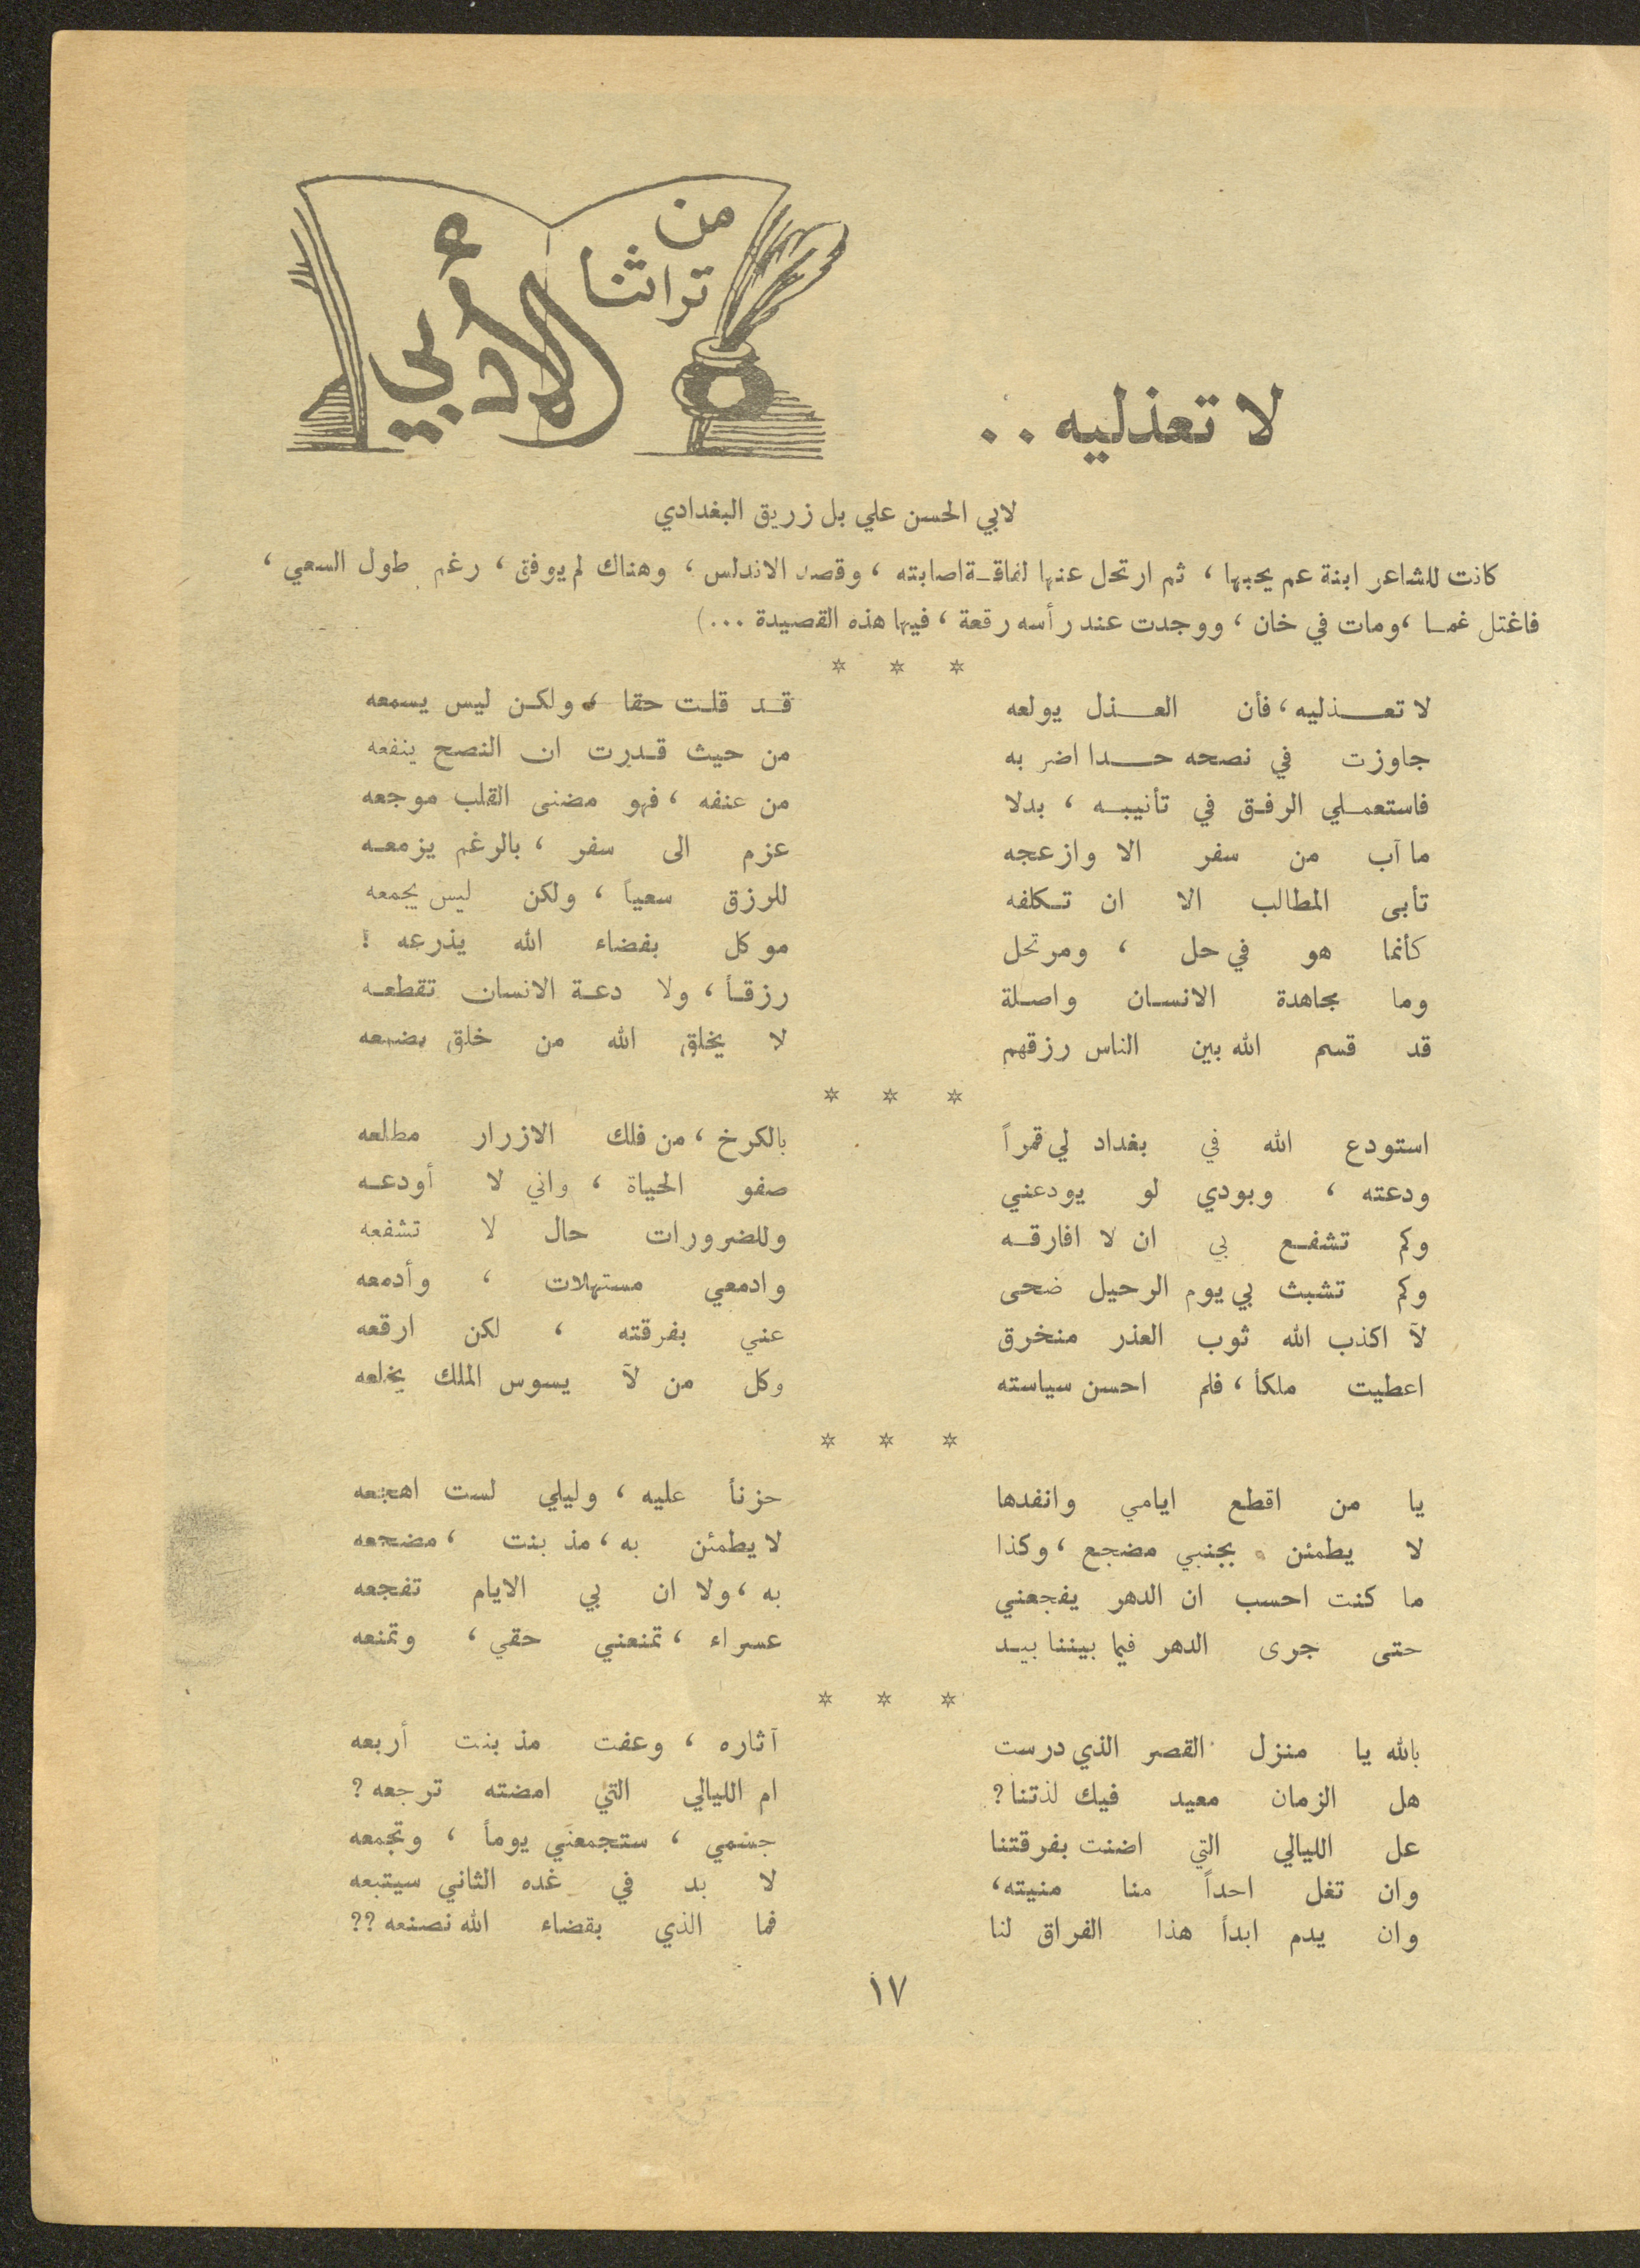 من
تراثنا
الأدبي
لا تعذليه . .
لابي الحسن علي بل زريق البغدادي
كانت للشاعر ابنة عم يحبها ، ثم ارتحل عنها لفاقـة اصابته ، وقصد الاندلس ، وهناك لم يوفق ، رغم طول السعي ،
فاغتل غمـا ، ومات في خان ، ووجدت عند رأسه رقعة ، فيها هذه القصيدة ...)
* * *
لا تعـــذليه ، فأن العــذل يولعه قـد قلـت حقا ، ولكـن ليس يسمعه
جاوزت في نصحه حــدا اضر به من حيث قـدرت ان النصح ينفعه
فاستعمـلي الرفـق في تأنيبـه ، بدلا من عنفه ، فهو مضنى القلب موجعه
ما آب من سفر الا وازعجه عزم الى سفر ، بالرغم يزمعـه
تأبى المطالب الا ان تـكلفه للرزق سعياً ، ولكن ليس يجمعه
كأنما هو في حل ، ومرتحل موكل بفضاء الله يذرعه !
وما مجاهدة الانسـان واصـلة رزقـأ ، ولا دعـة الانسان تقطعـه
قد قسم الله بين الناس رزقهم لا يخلق الله من خلق يضيعه
* * *
استودع الله في بغداد لي قمراً بالكرخ ، من فلك الازرار مطلعه
ودعته ، وبودي لو يودعني صفو الحياة ، واني لا أودعـه
وكم تشفـع بي ان لا افارقـه وللضرورات حال لا تشفعه
وكم تشبث بي يوم الرحيل ضحى وادمعي مستهلات ، وأدمعه
لآ اكذب الله ثوب العذر منخرق عني بفرقته ، لكن ارقعه
اعطيت ملكأ ، فلم احسن سياسته وكل من لآ يسوس الملك يخلعه
* * *
يا من اقطع ايامي وانفدها حزنأ عليه ، وليلي لست اهجعه
لا يطمئن بجنبي مضجع ، وكذا لا يطمئن به ، مذ بنت ، مضجعه
ما كنت احسب ان الدهر يفجعني به ، ولا ان بي الايام تفجعه
حتى جرى الدهر فيما بيننا بيـد عسراء ، تمنعني حقي ، وتمنعه
* * *
بالله يا منزل القصر الذي درست آثاره ، وعفت مذ بنت أربعه
هل الزمان معيد فيك لذتنا ؟ ام الليالي التي امضته ترجعه ؟
عل الليالي التي اضنت بفرقتنا جسمي ، ستجمعني يومأ ، وتجمعه
وان تغل احداً منا منيته ، لا بد في غده الثاني سيتبعه
وان يدم ابدأ هذا الفراق لنا فما الذي بقضاء الله نصنعه ؟؟
١٧